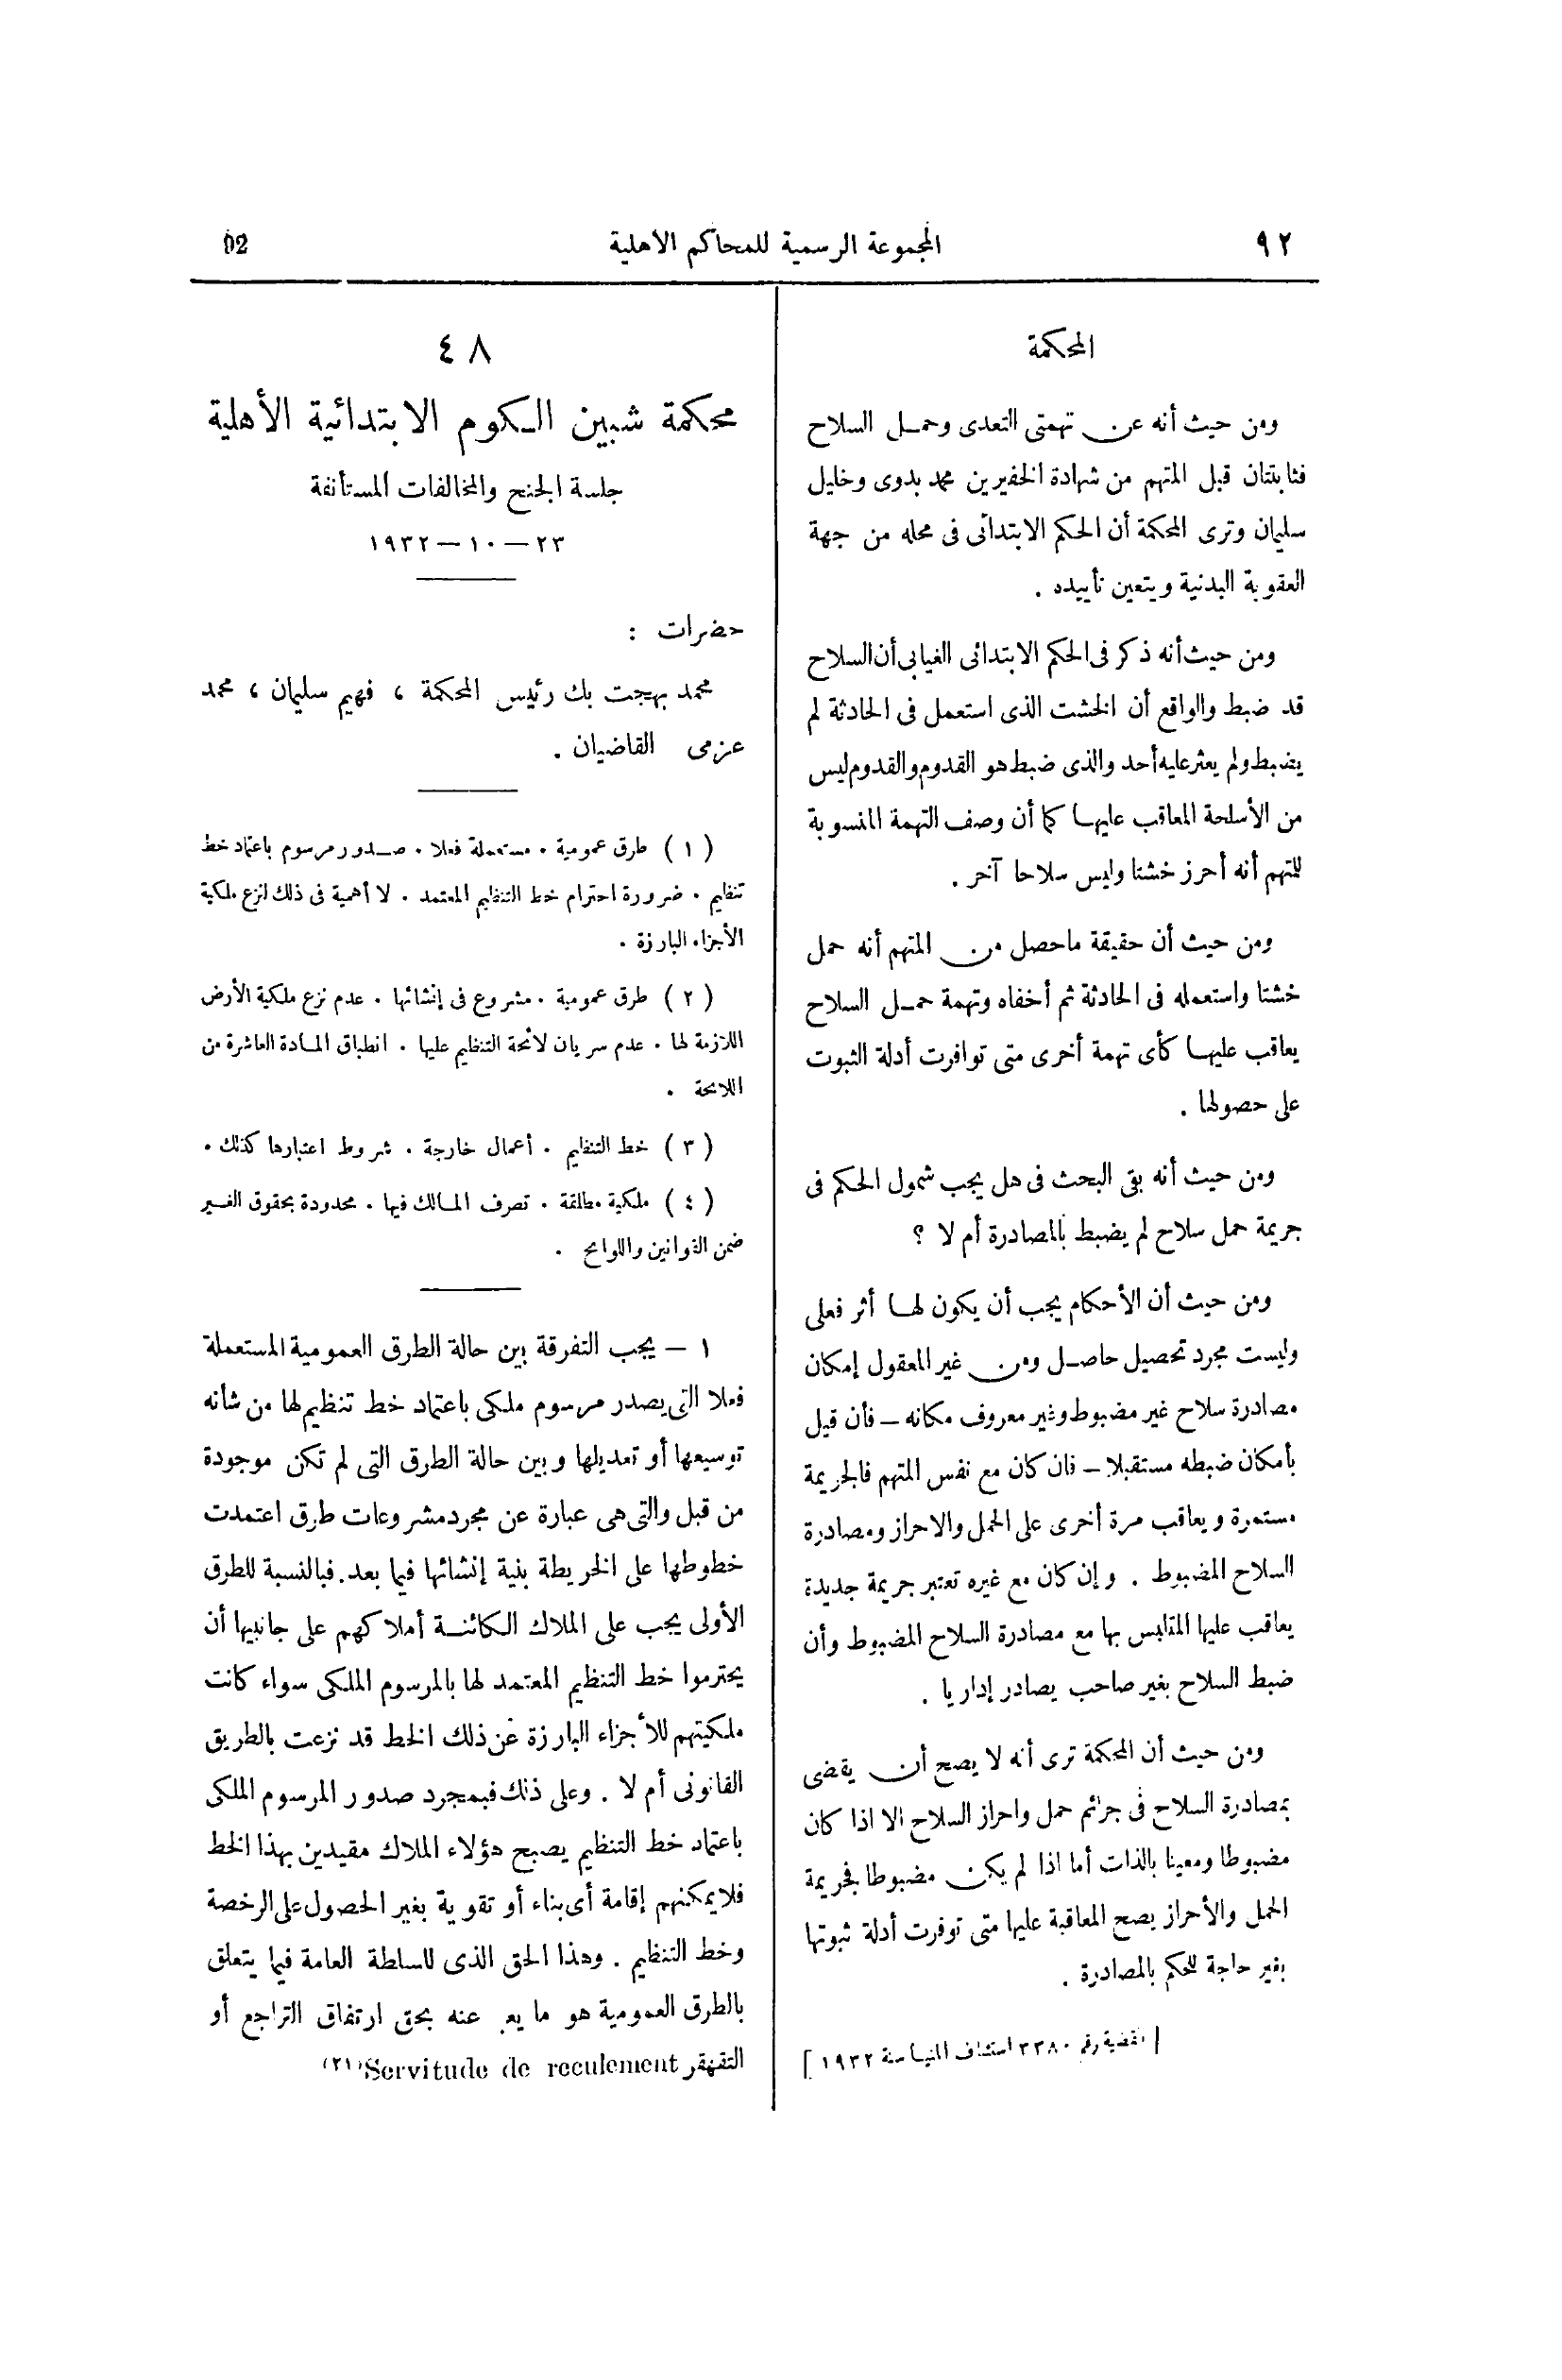 ٩٢
المجموعة الرسمية للمحاكم الاهلية
92
المحكمة
ومن حيث أنه عن تهمتى التعدى وحمل السلاح
فثابتتان قبل المتهم من شهادة الخفيرين محمد بدوى وخليل
سليمان وترى المحكمة أن الحكم الابتدائى فى محله من جهة
العقوبة البدنية ويتعين تأييده .
ومن حيث أنه ذكر فى الحكم الابتدائى الغيابى أن السلاح
قد ضبط والواقع أن الخشت الذى استعمل فى الحادثة لم
يضبط ولم يعثر عليه أحد والذى ضبط هو القدوم والقدوم ليس
من الأسلحة المعاقب عليها كما أن وصف التهمة المنسوبة
للمتهم أنه أحرز خشتا وليس سلاحا آخر .
ومن حيث أن حقيقة ماحصل من المتهم أنه حمل
خشتا واستعمله فى الحادثة ثم أخفاه وتهمة حمل السلاح
يعاقب عليها كأى تهمة أخرى متى توافرت أدلة الثبوت
على حصولها .
ومن حيث أنه بقى البحث فى هل يجب شمول الحكم فى
جريمة حمل سلاح لم يضبط بالمصادرة أم لا ؟
ومن حيث أن الأحكام يجب أن يكون لها أثر فعلى
وليست مجرد تحصيل حاصل ومن غير المعقول إمكان
مصادرة سلاح غير مضبوط وغير معروف مكانه – فأن قيل
بأمكان ضبطه مستقبلا – فان كان مع نفس المتهم فالجريمة
مستمرة ويعاقب مرة أخرى على الحمل والاحراز ومصادرة
السلاح المضبوط . وإن كان مع غيره تعتبر جريمة جديدة
يعاقب عليها المتلبس بها مع مصادرة السلاح المضبوط وأن
ضبط السلاح بغير صاحب يصادر إداريا .
ومن حيث أن المحكمة ترى أنه لا يصح أن يقضى
بمصادرة السلاح فى جرائم حمل واحراز السلاح الا اذا كان
مضبوطا ومعينا بالذات أما اذا لم يكن مضبوطا فجريمة
الحمل والأحراز يصح المعاقبة عليها متى توفرت أدلة ثبوتها
بغير حاجة للحكم بالمصادرة .
[ القضية رقم ٣٣٨٠ استئناف المنيا سنة ١٩٣٢ ]
٤٨
محكمة شبين الكوم الابتدائية الأهلية
جلسة الجنح والمخالفات المستأنفة
٢٣ — ١٠ — ١٩٣٢
حضرات :
محمد بهجت بك رئيس المحكمة ، فهيم سليمان ، محمد
عزمى القاضيان .
( ١ ) طرق عمومية . مستعملة فعلا . صدور مرسوم باعتماد خط
تنظيم . ضرورة احترام خط التنظيم المعتمد . لا أهمية فى ذلك لنزع ملكية
الأجزاء البارزة .
( ٢ ) طرق عمومية . مشروع فى إنشائها . عدم نزع ملكية الأرض
اللازمة لها . عدم سريان لائحة التنظيم عليها . انطباق المادة العاشرة من
اللائحة .
( ٣ ) خط التنظيم . أعمال خارجة . شروط اعتبارها كذلك .
( ٤ ) ملكية مطلقة . تصرف المالك فيها . محدودة بحقوق الغير
ضمن القوانين واللوائح .
١ – يجب التفرقة بين حالة الطرق العمومية المستعملة
فعلا التى يصدر مرسوم ملكى باعتماد خط تنظيم لها من شأنه
توسيعها أو تعديلها وبين حالة الطرق التى لم تكن موجودة
من قبل والتى هى عبارة عن مجرد مشروعات طرق اعتمدت
خطوطها على الخريطة بنية إنشائها فيما بعد. فبالنسبة للطرق
الأولى يجب على الملاك الكائنة أملاكهم على جانبيها أن
يحترموا خط التنظيم المعتمد لها بالمرسوم الملكى سواء كانت
ملكيتهم للأجزاء البارزة عن ذلك الخط قد نزعت بالطريق
القانونى أم لا . وعلى ذلك فبمجرد صدور المرسوم الملكى
باعتماد خط التنظيم يصبح هؤلاء الملاك مقيدين بهذا الخط
فلا يمكنهم إقامة أى بناء أو تقوية بغير الحصول على الرخصة
وخط التنظيم . وهذا الحق الذى للسلطة العامة فيما يتعلق
بالطرق العمومية هو ما يعبر عنه بحق ارتفاق التراجع أو
التقهقر Servitude de reculement (٢١)